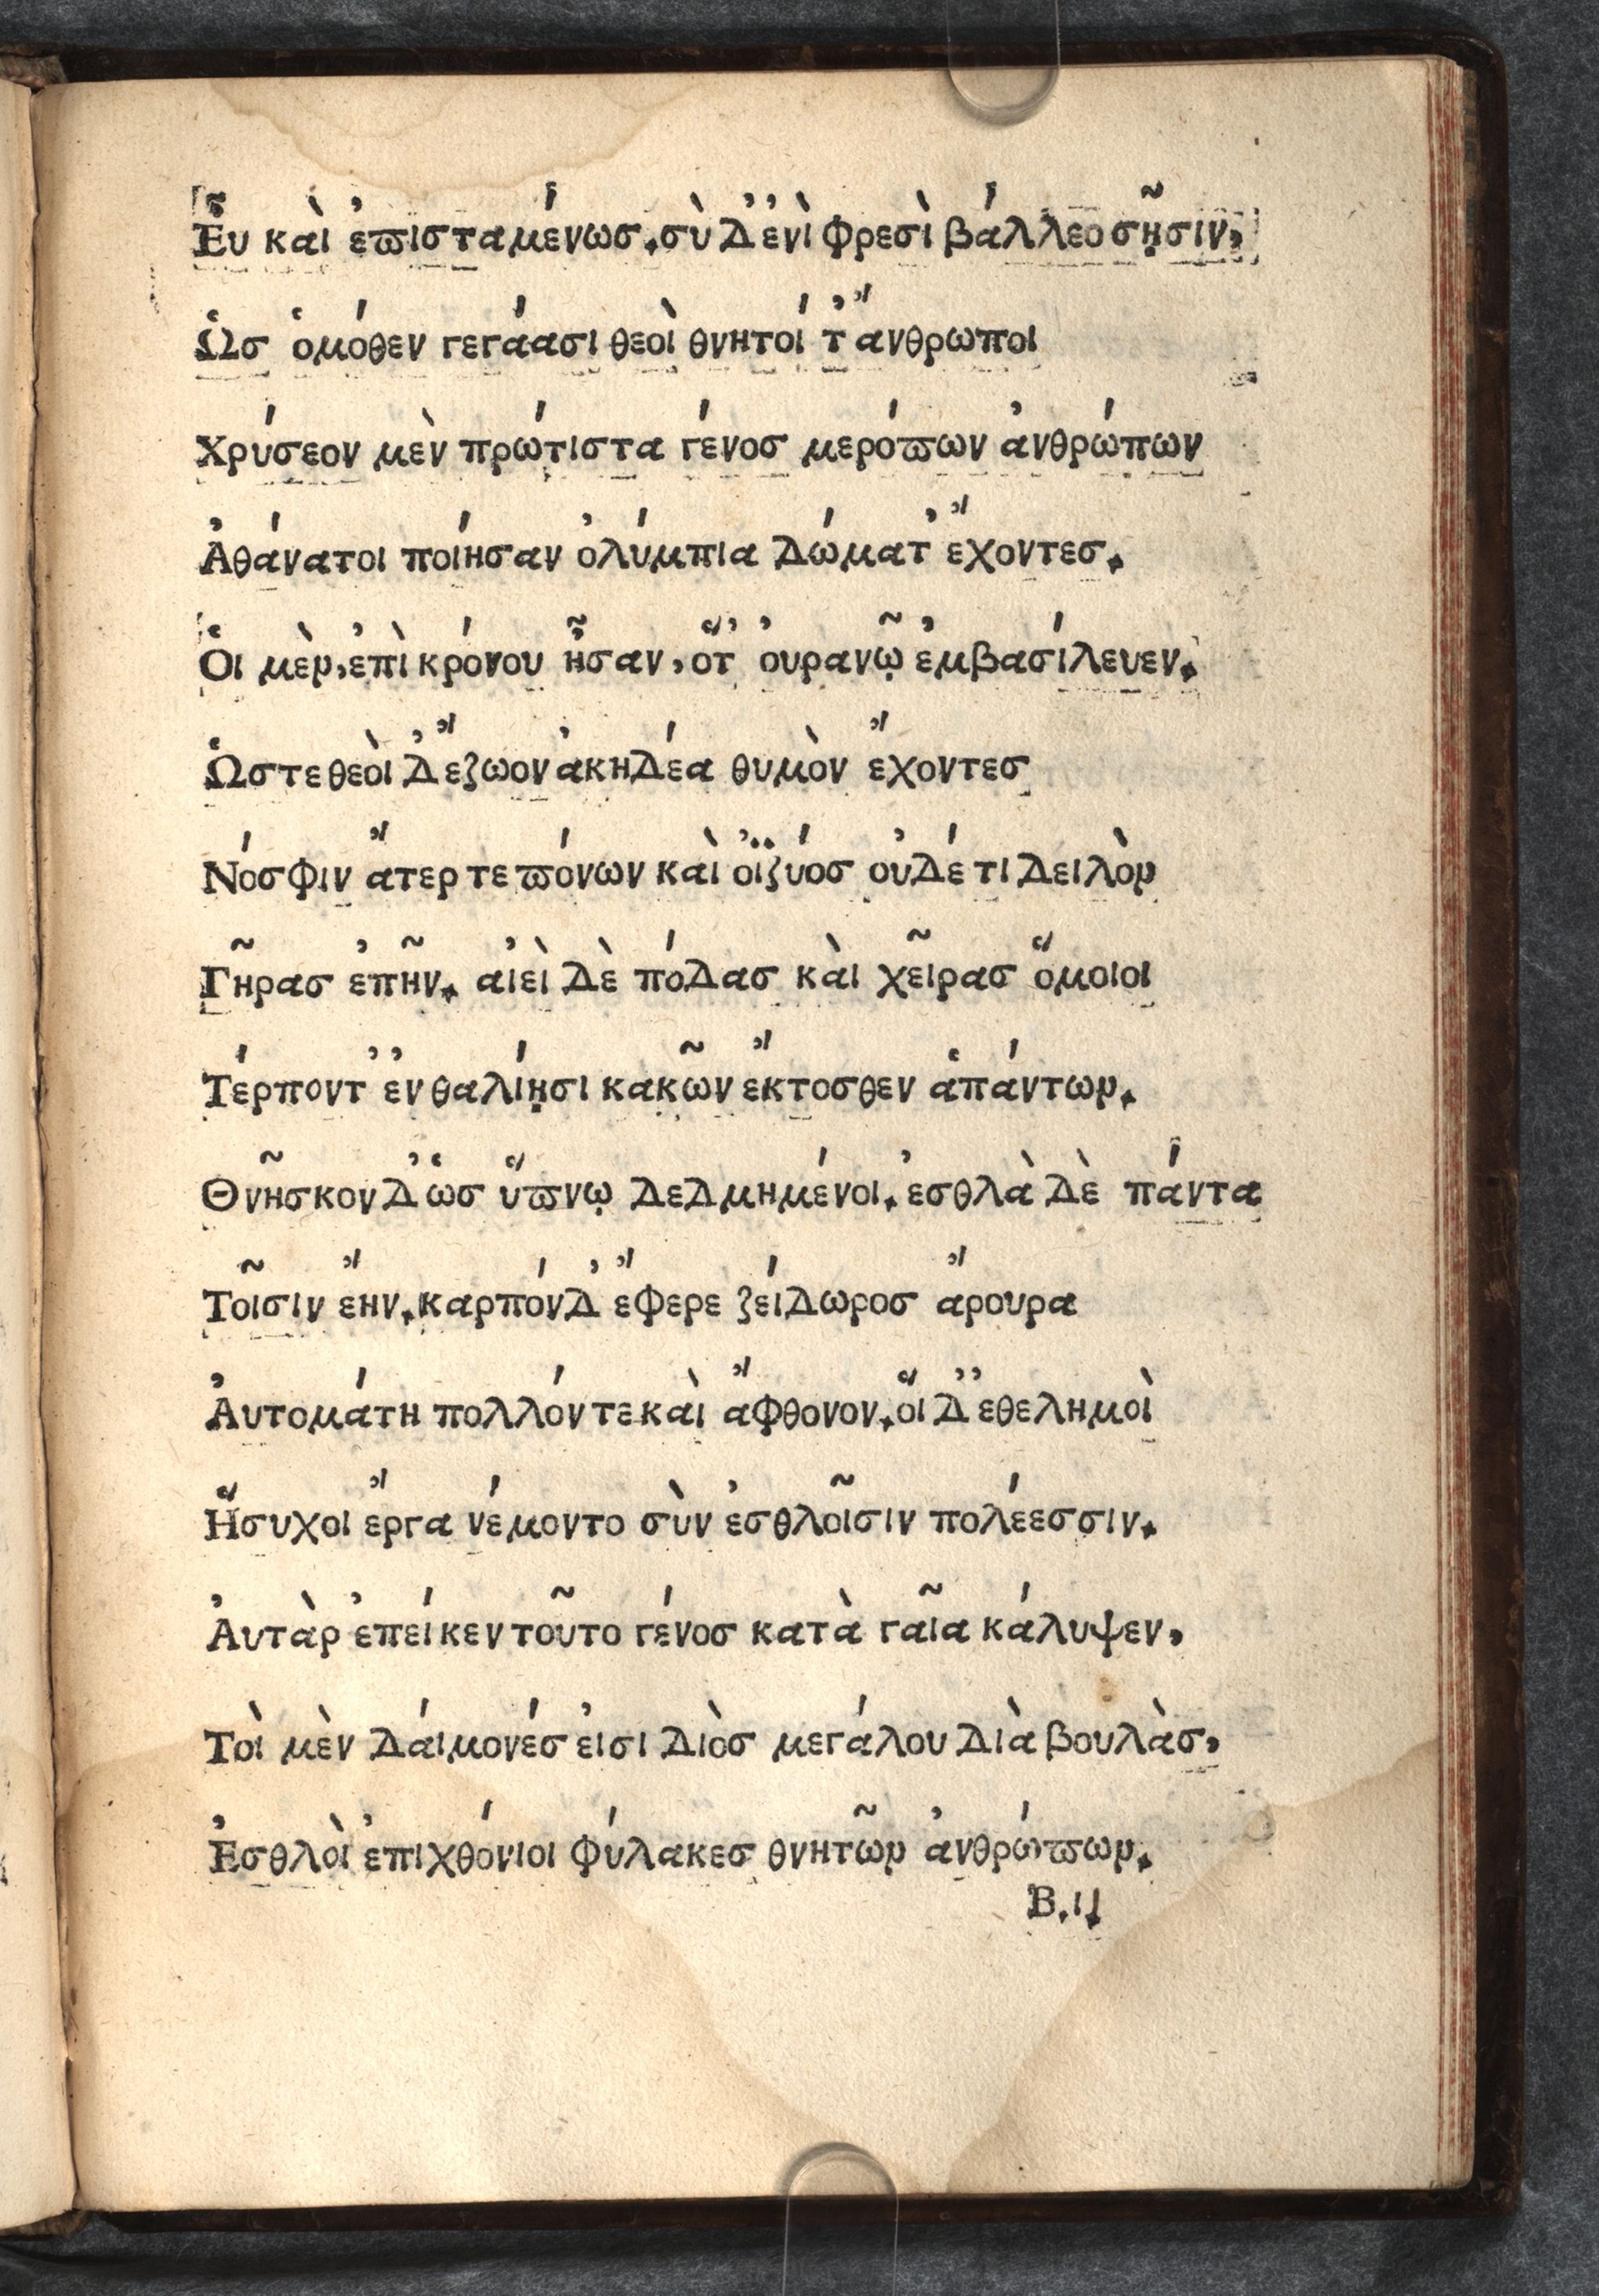 Εὖ καὶ ἐϖισταμένωσ.σὺ Δ̓ ἐνὶ φρεσὶ βάλλεο σῇσιν,
Ὡσ ὁμόθεν γεγάασι θεοὶ θνητοί τ̓ ἄνθρωποι
Χρύσεον μὲν πρώτιστα γένοσ μερόϖων ἀνθρώπων
Ἀθάνατοι ποίησαν ὀλύμπια Δώματ̓ ἔχοντεσ.
Ὁι μὲν,ἐπὶ κρόνου ἦσαν,ὅτ̓ ὀυρανῷ ἐμβασίλευεν.
Ὡστε θεοὶ Δ̓ ἔζωον ἀκηΔέα θυμὸν ἔχοντεσ
Νόσφιν ἄτερ τε ϖόνων καὶ ὀϊζύοσ οὐΔέ τι Δειλὸν
Γῆρασ ἐπῆν. αἰεὶ Δὲ πόΔασ κὰι χεῖρασ ὅμοιοι
Τέρποντ̓ ἐν θαλίῃσι κακῶν ἔκτοσθεν ἁπάντων.
Θνῆσκον Δ̓ ὡσ ὕϖνῳ ΔεΔμημένοι.ἐσθλὰ Δὲ πάντα
Τοῖσιν ἔην.καρπόνΔ̓ ἔφερε ζείΔωροσ ἄρουρα
Ἀυτομάτη πολλόν τε καὶ ἄφθονον.οἵ Δ̓ ἐθελημοὶ
Ἥσυχοι ἔργα νέμοντο σὺν ἐσθλοῖσιν πολέεσσιν.
Ἀυτὰρ ἐπεί κεν τοῦτο γένοσ κατὰ γαῖα κάλυψεν,
Τοὶ μὲν Δάιμονέσ ἐισι Διὸσ μεγάλου Διὰ βουλὰσ,
Ἐσθλοὶ ἐπιχθόνιοι φύλακεσ θνητῶν ἀνθρώϖων.
B.ii